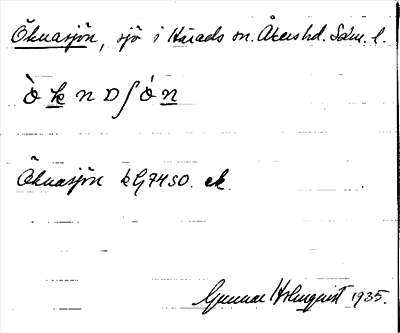 Öknasjön, sjö i Härads sn. Åkers hd. Sdm. l.
ò̀ k n ɒ ʃ ó n
Öknasjön kG7450. ek.
Gunnar Holmquist 1935.